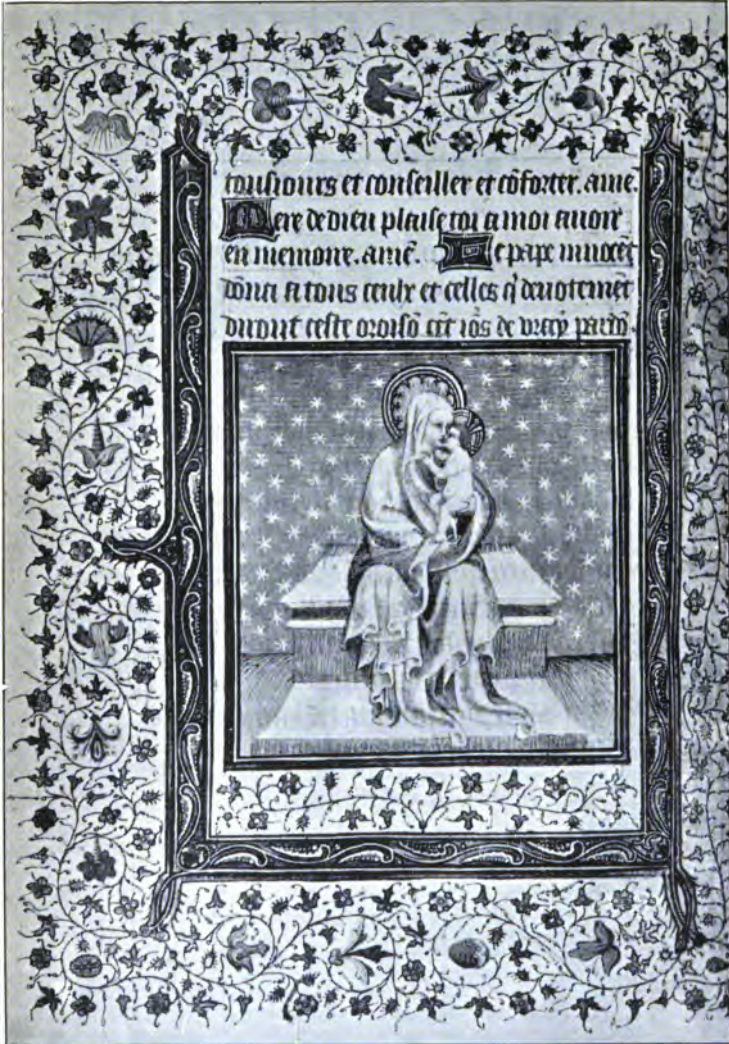 tousiours et conseiller et cõforter. amẽ.
Mere de dieu plaise toi a moi auoir
en memoire. amẽ. Le pape innocẽt
donna a tous ceulx et celles q̃ deuotemẽt
diront ceste oroisõ cẽt iõs de vray pardõ.